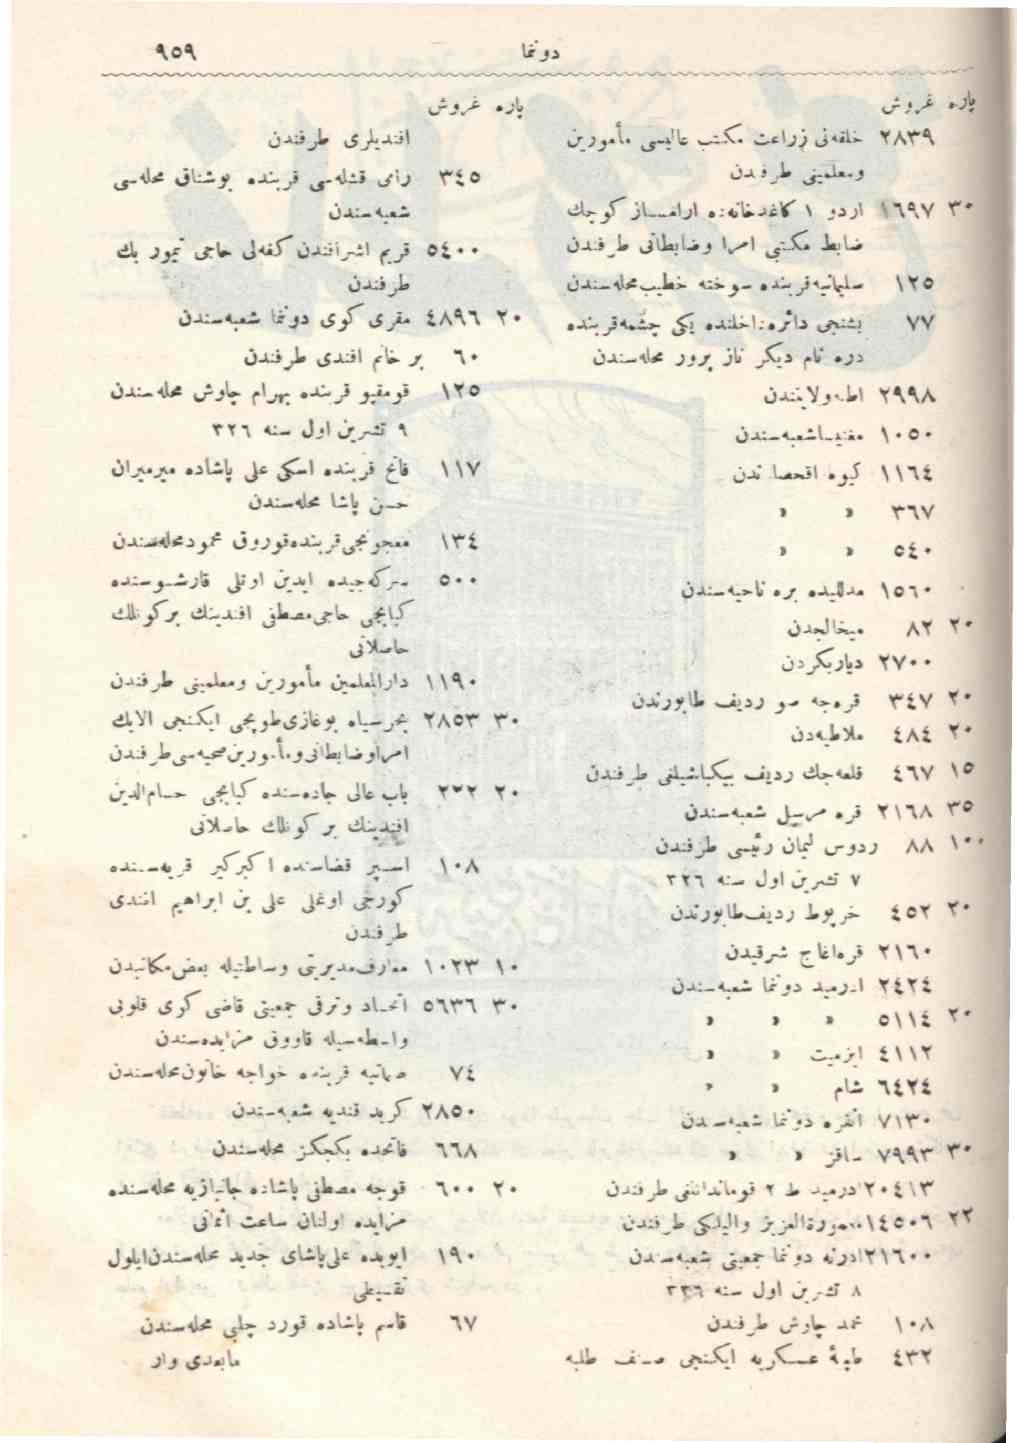 دونما ٩٥٩
پاره غروش
٢٨٣٩ خلقه‌لی زراعت مكتب عالیسی مأمورین
ومعلمینی طرفندن
٣٠ ١٦٩٧ اردو ١ كاغدخانه‌ده كوچك
ضابط مكتبی امرا وضابطانی طرفندن
١٢٥ سلیمانیه قربنده سوخته خطیب محله‌سندن
٧٧ بشنجی دائره داخلنده یكی چشمه قربنده
دره نام دیكر ناز پرور محله‌سندن
٢٩٩٨ اطنه ولایتندن
١٠٥٠ مغنیسا شعبه‌سندن
١١٦٤ كیوه اقحصارندن
٣٦٧ » »
٥٤٠ » »
١٥٦٠ مدللیده بره ناحیه‌سندن
٢٠ ٨٢ میخالجدن
٢٧٠٠ دیاربكردن
٢٠ ٣٤٧ قره‌جه صو ردیف طابورندن
٢٠ ٤٨٤ ملاطیه‌دن
١٥ ٤٦٧ قلعه‌جك ردیف بیكباشیلغی طرفندن
٣٥ ٢١٦٨ قره مرسل شعبه‌سندن
١٠٠ ٨٨ ردوس لیمان رئیسی طرفندن
٧ تشرین اول سنه ٣٢٦
٢٠ ٤٥٢ خرپوط ردیف طابورندن
٢١٦٠ قره‌اغاج شرقیدن
٢٤٢٤ ادرمید دونما شعبه‌سندن
٢٠ ٥١١٤ » » »
٤١١٢ ازمیت » »
٦٤٢٤ شام » »
٧١٣٠ انقره دونما شعبه‌سندن
٣٠ ٧٩٩٣ ساقز » »
٢٠٤١٣ ادرمید ط ٢ قوماندانلغی طرفندن
٢٢ ١٤٥٠٦ معمورةالعزیز والیلكی طرفندن
٢١٦٠٠ ادرنه دونما جمعیتی شعبه‌سندن
٨ تشرین اول سنه ٣٢٦
١٠٨ محمد چاوش طرفندن
٤٣٢ طبیهٔ عسكریه ایكنجی صنف طلبه
پاره غروش
افندیلری طرفندن
٣٤٥ رامی قشله‌سی قربنده بوشناق محله‌سی
شعبه‌سندن
٥٤٠٠ قریم اشرافندن كفه‌لی حاجی تیمور بك
طرفندن
٢٠ ٤٨٩٦ مقری كوی دونما شعبه‌سندن
٦٠ بر خانم افندی طرفندن
١٢٥ قومقپو قربنده بهرام چاوش محله‌سندن
٩ تشرین اول سنه ٣٢٦
١١٧ فاتح قربنده اسكی علی پاشاده میرمیران
حسن پاشا محله‌سندن
١٣٤ معجونجی قربنده قوروق محمود محله‌سندن
٥٠٠ سركه‌جیده ایدین اوتلی قارشوسنده
كبابجی حاجی مصطفی افندینك بركونلك
حاصلاتی
١١٩٠ دارالمعلمین مأمورین ومعلمینی طرفندن
٣٠ ٢٨٥٣ بحرسیاه بوغازی طوپجی ایكنجی الایك
امرا وضابطانی ومأمورین صحیه‌سی طرفندن
٢٠ ٢٣٢ باب عالی جاده‌سنده كبابجی حسام‌الدین
افندینك بر كونلك حاصلاتی
١٠٨ اسپیر قضاسنده اكبركیر قریه‌سنده
كورجی اوغلی علی بن ابراهیم افندی
طرفندن
١٠ ١٠٢٣ معارف مدیریتی وساطتیله بعض مكاتبدن
٣٠ ٥٦٣٦ اتحاد وترقی جمعیتی قاضی كوی قلوبی
واسطه‌سیله قاووق مزایده‌سندن
٧٤ صماتیه قربنده خواجه خاتون محله‌سندن
٢٨٥٠ كرید قندیه شعبه‌سندن
٦٦٨ فاتحده بكجكز محله‌سندن
٢٠ ٦٠٠ قوجه مصطفی پاشاده جانبازیه محله‌سنده
مزایده اولنان ساعت اثمانی
١٩٠ ایوبده علی پاشای جدید محله‌سندن ایلول
تقسیطی
٦٧ قاسم پاشاده قورد چلبی محله‌سندن
مابعدی وار